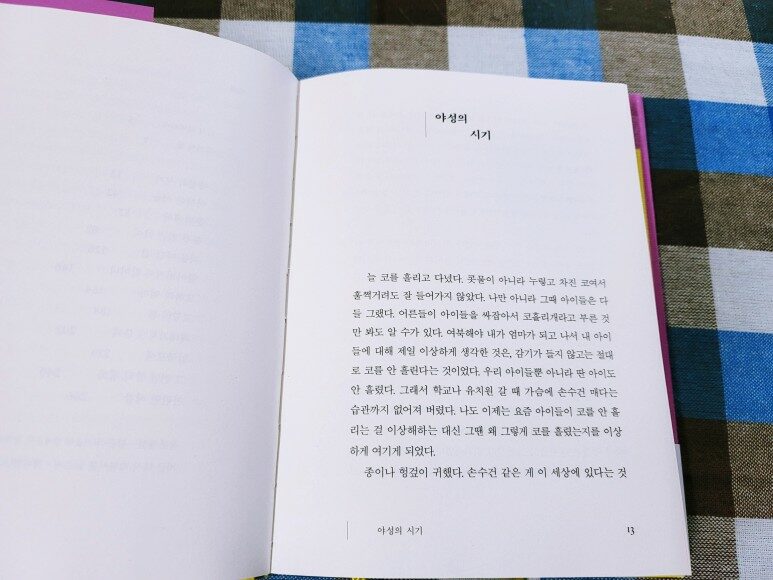 야성의
시기
늘 코를 흘리고 다녔다. 콧물이 아니라 누렇고 차진 코여서
훌쩍거려도 잘 들어가지 않았다. 나만 아니라 그때 아이들은 다
들 그랬다. 어른들이 아이들을 싸잡아서 코흘리개라고 부른 것
만 봐도 알 수가 있다. 여북해야 내가 엄마가 되고 나서 내 아이
들에 대해 제일 이상하게 생각한 것은, 감기가 들지 않고는 절대
로 코를 안 흘린다는 것이었다. 우리 아이들뿐 아니라 딴 아이도
안 흘렸다. 그래서 학교나 유치원 갈 때 가슴에 손수건 매다는
습관까지 없어져 버렸다. 나도 이제는 요즘 아이들이 코를 안 흘
리는 걸 이상해하는 대신 그땐 왜 그렇게 코를 흘렸는지를 이상
하게 여기게 되었다.
종이나 헝겊이 귀했다. 손수건 같은 게 이 세상에 있다는 것
야성의 시기 13